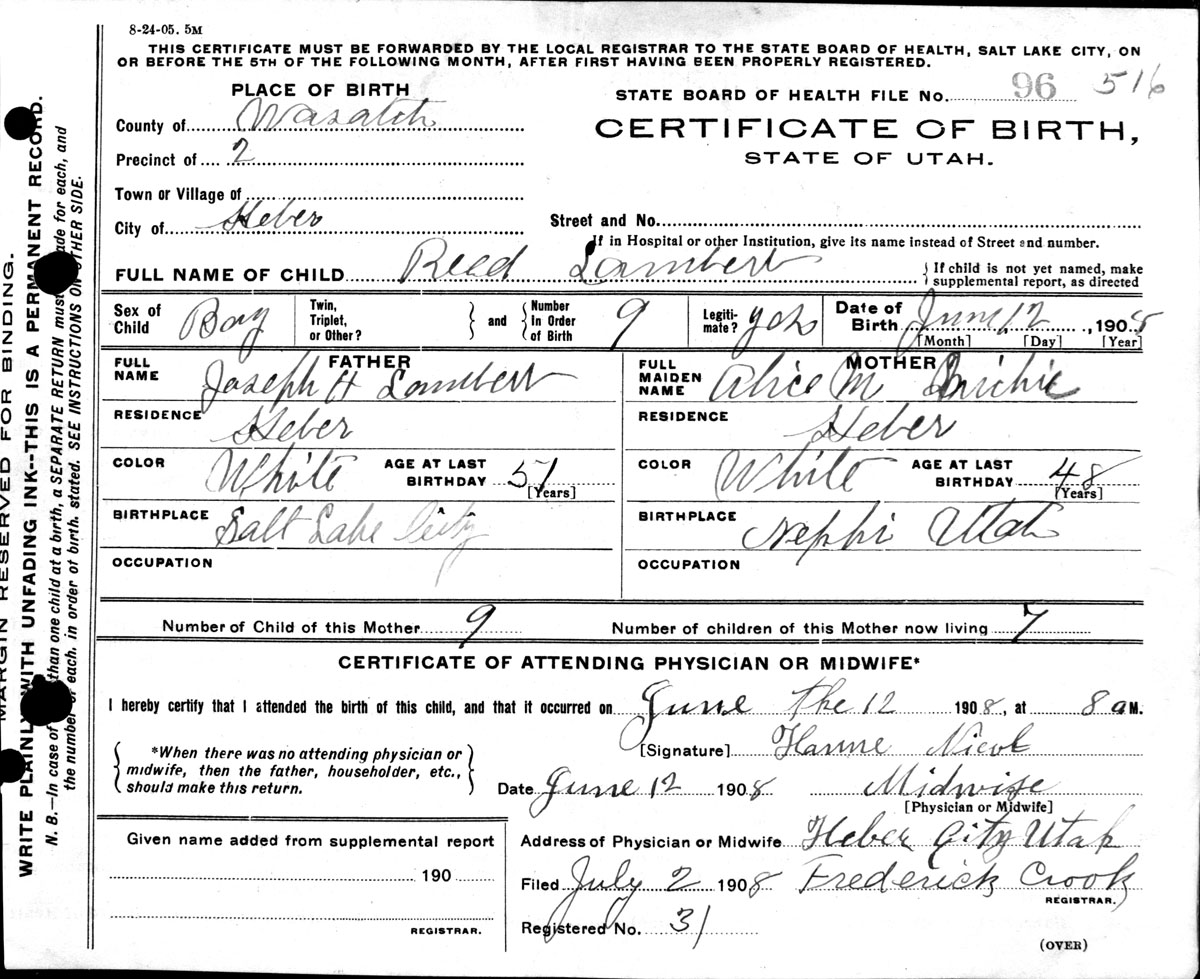 8-24-05. 5M
THIS CERTIFICATE MUST BE FORWARDED BY THE LOCAL REGISTRAR TO THE STATE BOARD OF HEALTH, SALT LAKE CITY, ON
OR BEFORE THE 5TH OF THE FOLLOWING MONTH, AFTER FIRST HAVING BEEN PROPERLY REGISTERED.
PLACE OF BIRTH
STATE BOARD OF HEALTH FILE No. 96 516
County of Wasatch
CERTIFICATE OF BIRTH,
STATE OF UTAH.
Precinct of 2
Town or Village of
City of Heber
Street and No.
If in Hospital or other Institution, give its name instead of Street and number.
FULL NAME OF CHILD Read Lambert
{ If child is not yet named, make
supplemental report, as directed
Sex of Child Boy
Twin, Triplet, or Other? } and { Number In Order of Birth 9
Legitimate? yes
Date of Birth June 12, 1908
[Month] [Day] [Year]
FATHER
FULL NAME Joseph H Lambert
MOTHER
FULL MAIDEN NAME Alice M
RESIDENCE Heber
RESIDENCE Heber
COLOR White AGE AT LAST BIRTHDAY 51 [Years]
COLOR White AGE AT LAST BIRTHDAY 48 [Years]
BIRTHPLACE Salt Lake City
BIRTHPLACE Nephi Utah
OCCUPATION
OCCUPATION
Number of Child of this Mother 9 Number of children of this Mother now living 7
CERTIFICATE OF ATTENDING PHYSICIAN OR MIDWIFE*
I hereby certify that I attended the birth of this child, and that it occurred on June the 12 1908, at 8 a M.
{ *When there was no attending physician or
midwife, then the father, householder, etc.,
should make this return. }
[Signature] Hanne Nicol
Date June 12 1908 Midwife
[Physician or Midwife]
Given name added from supplemental report
190
REGISTRAR.
Address of Physician or Midwife Heber City Utah
Filed July 2 1908 Frederick Crook
REGISTRAR.
Registered No. 31
(OVER)
MARGIN RESERVED FOR BINDING.
WRITE PLAINLY WITH UNFADING INK--THIS IS A PERMANENT RECORD.
N. B.—In case of than one child at a birth, a SEPARATE RETURN must made for each, and
the number each, in order of birth, stated. SEE INSTRUCTIONS ON OTHER SIDE.